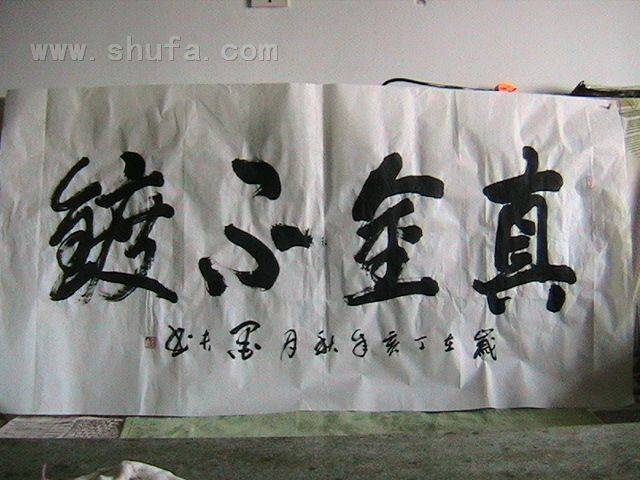 www.shufa.com
真金不镀
歲在丁亥年秋月墨夫书